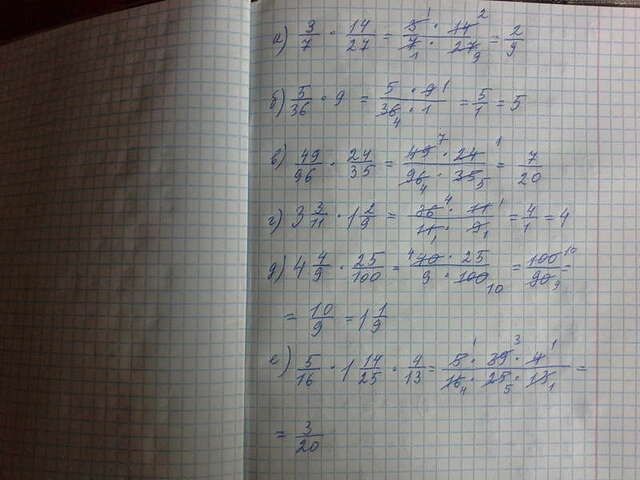 а) 3/7 · 14/27 = 3 1 · 14 2 / 7 1 · 27 9 = 2/9
б) 5/36 · 9 = 5 · 9 1 / 36 4 · 1 = 5/1 = 5
в) 49/96 · 24/35 = 49 7 · 24 1 / 96 4 · 35 5 = 7/20
г) 3 3/11 · 1 2/9 = 36 4 · 11 1 / 11 1 · 9 1 = 4/1 = 4
д) 4 4/9 · 25/100 = 4 40 · 25 / 9 · 100 10 = 100 10 / 90 9 =
= 10/9 = 1 1/9
е) 5/16 · 1 14/25 · 4/13 = 5 1 · 39 3 · 4 1 / 16 4 · 25 5 · 13 1 =
= 3/20